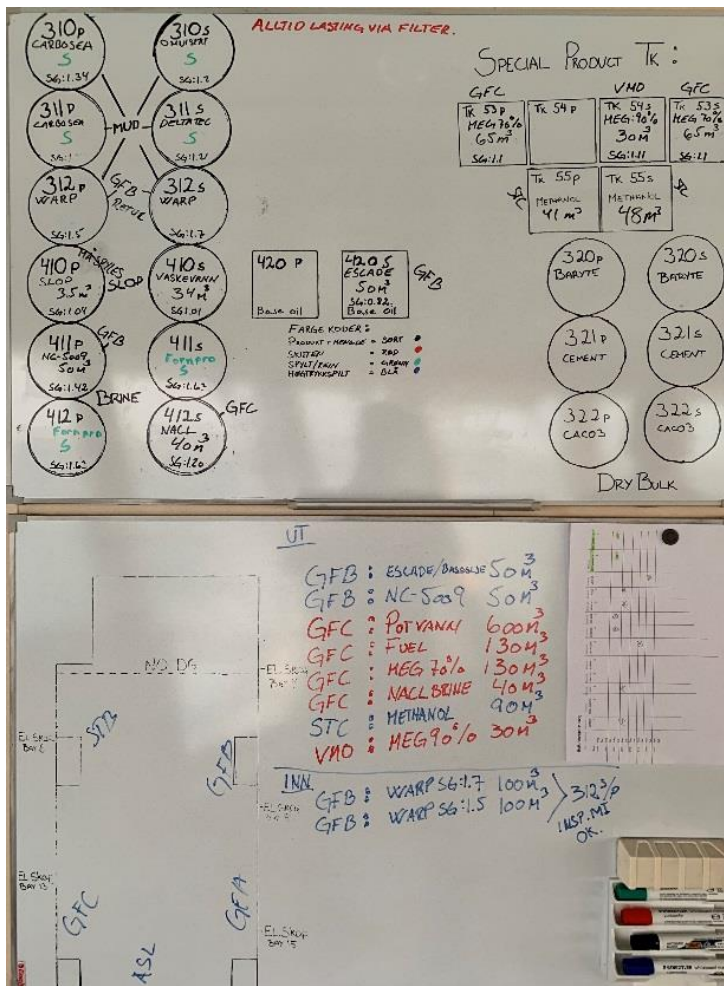 ALLTID LASTING VIA FILTER.
310P
CARBOSEA
S
SG:1.34
310s
S
SG:1.2
311P
CARBOSEA
S
311s
DELTATEC
S
MUD
312P
WARP
SG:1.5
312s
WARP
SG:1.7
GFB
RETUR
410P
SLOP
3.5m³
SG:1.04
MÅ SPYLES
SLOP
410s
VASKEVANN
34M³
SG1.01
411P
NC-5009
50M³
SG:1.42
GFB
411s
Fornpro
S
SG:1.63
BRINE
412P
Fornpro
S
SG:1.63
412s
NACL
40M³
SG:1.20
GFC
420 P
Base oil
420 S
ESCADE
50M³
SG:0.82
Base oil
GFB
FARGE KODER:
PRODUKT + MENGDE = SORT
SKITTEN = RØD
SPYLT/REIN = GRØNN
HØGTRYKKSPYLT = BLÅ
SPECIAL PRODUCT TK:
GFC VMO GFC
TK 53P
MEG 70%
65M³
SG:1.1
TK 54P
TK 54s
MEG:90%
30M³
SG:1.11
TK 53s
MEG 70%
65M³
SG:1.1
TK 55P
METHANOL
41M³
TK 55s
METHANOL
48M³
320P
BARYTE
320s
BARYTE
321P
CEMENT
321s
CEMENT
322P
CACO3
322s
CACO3
DRY BULK
UT
GFB: ESCADE/BASEOLJE 50M³
GFB: NC-5009 50M³
GFC: POTVANN 600M³
GFC: FUEL 130M³
GFC: MEG 70% 130M³
GFC: NACL BRINE 40M³
STC: METHANOL 90M³
VMO: MEG 90% 30M³
INN
GFB: WARP SG:1.7 100M³
GFB: WARP SG:1.5 100M³
312 S/P
INSP. MI
OK.
NO DG
STB
GFB
GFC
GFA
ASL
EL SKAP
BAY 13
EL SKAP
BAY 15